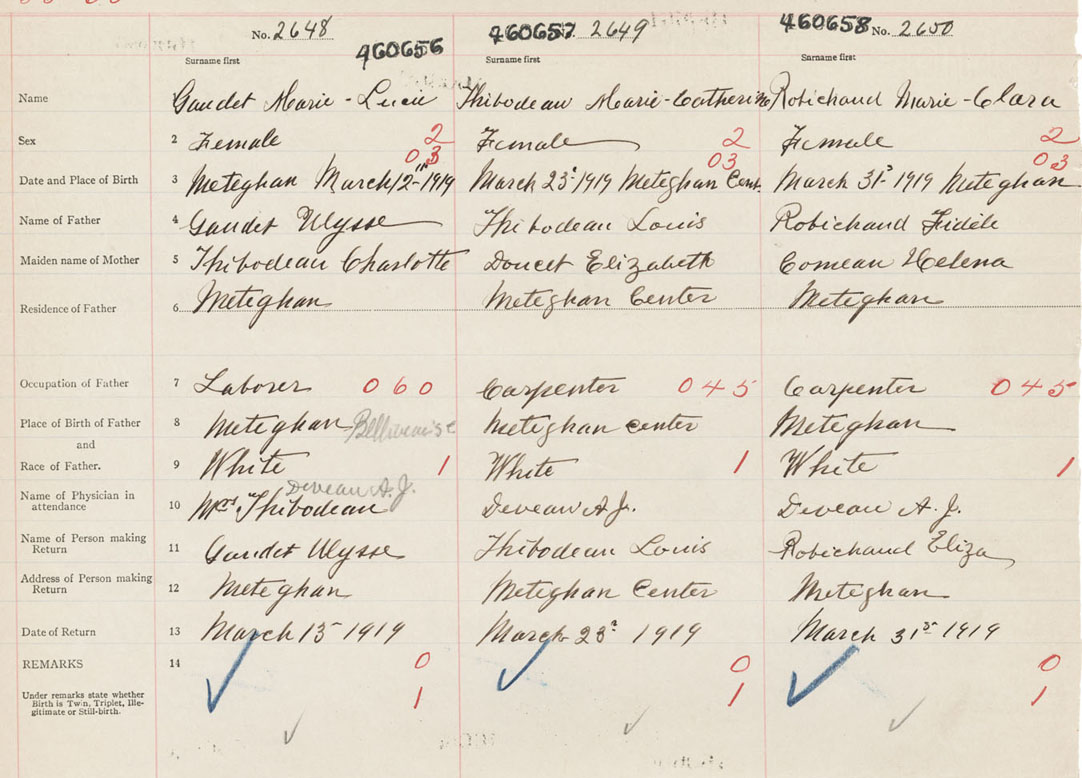 No. 2648 460656 460657 2649 460658 No. 2650
Surname first Surname first Surname first
Name Gaudet Marie-Lucie Thibodeau Marie-Catherine Robichaud Marie-Clara
Sex 2 Female 2 Female 2 Female 2
03 03 03
Date and Place of Birth 3 Meteghan March 12th 1919 March 23d 1919 Meteghan Cent. March 31st 1919 Meteghan
Name of Father 4 Gaudet Ulysse Thibodeau Louis Robichaud Fidèle
Maiden name of Mother 5 Thibodeau Charlotte Doucet Elizabeth Comeau Helena
Residence of Father 6 Meteghan Meteghan Center Meteghan
Occupation of Father 7 Laborer 060 Carpenter 045 Carpenter 045
Place of Birth of Father 8 Meteghan Meteghan Center Meteghan
and
Race of Father. 9 White 1 White 1 White 1
Deveau A.J.
Name of Physician in attendance 10 Mrs Thibodeau Deveau A.J. Deveau A.J.
Name of Person making Return 11 Gaudet Ulysse Thibodeau Louis Robichaud Eliza
Address of Person making Return 12 Meteghan Meteghan Center Meteghan
Date of Return 13 March 15 1919 March 23d 1919 March 31st 1919
REMARKS 14 0 0 0
Under remarks state whether 1 1 1
Birth is Twin, Triplet, Ille-
gitimate or Still-birth.